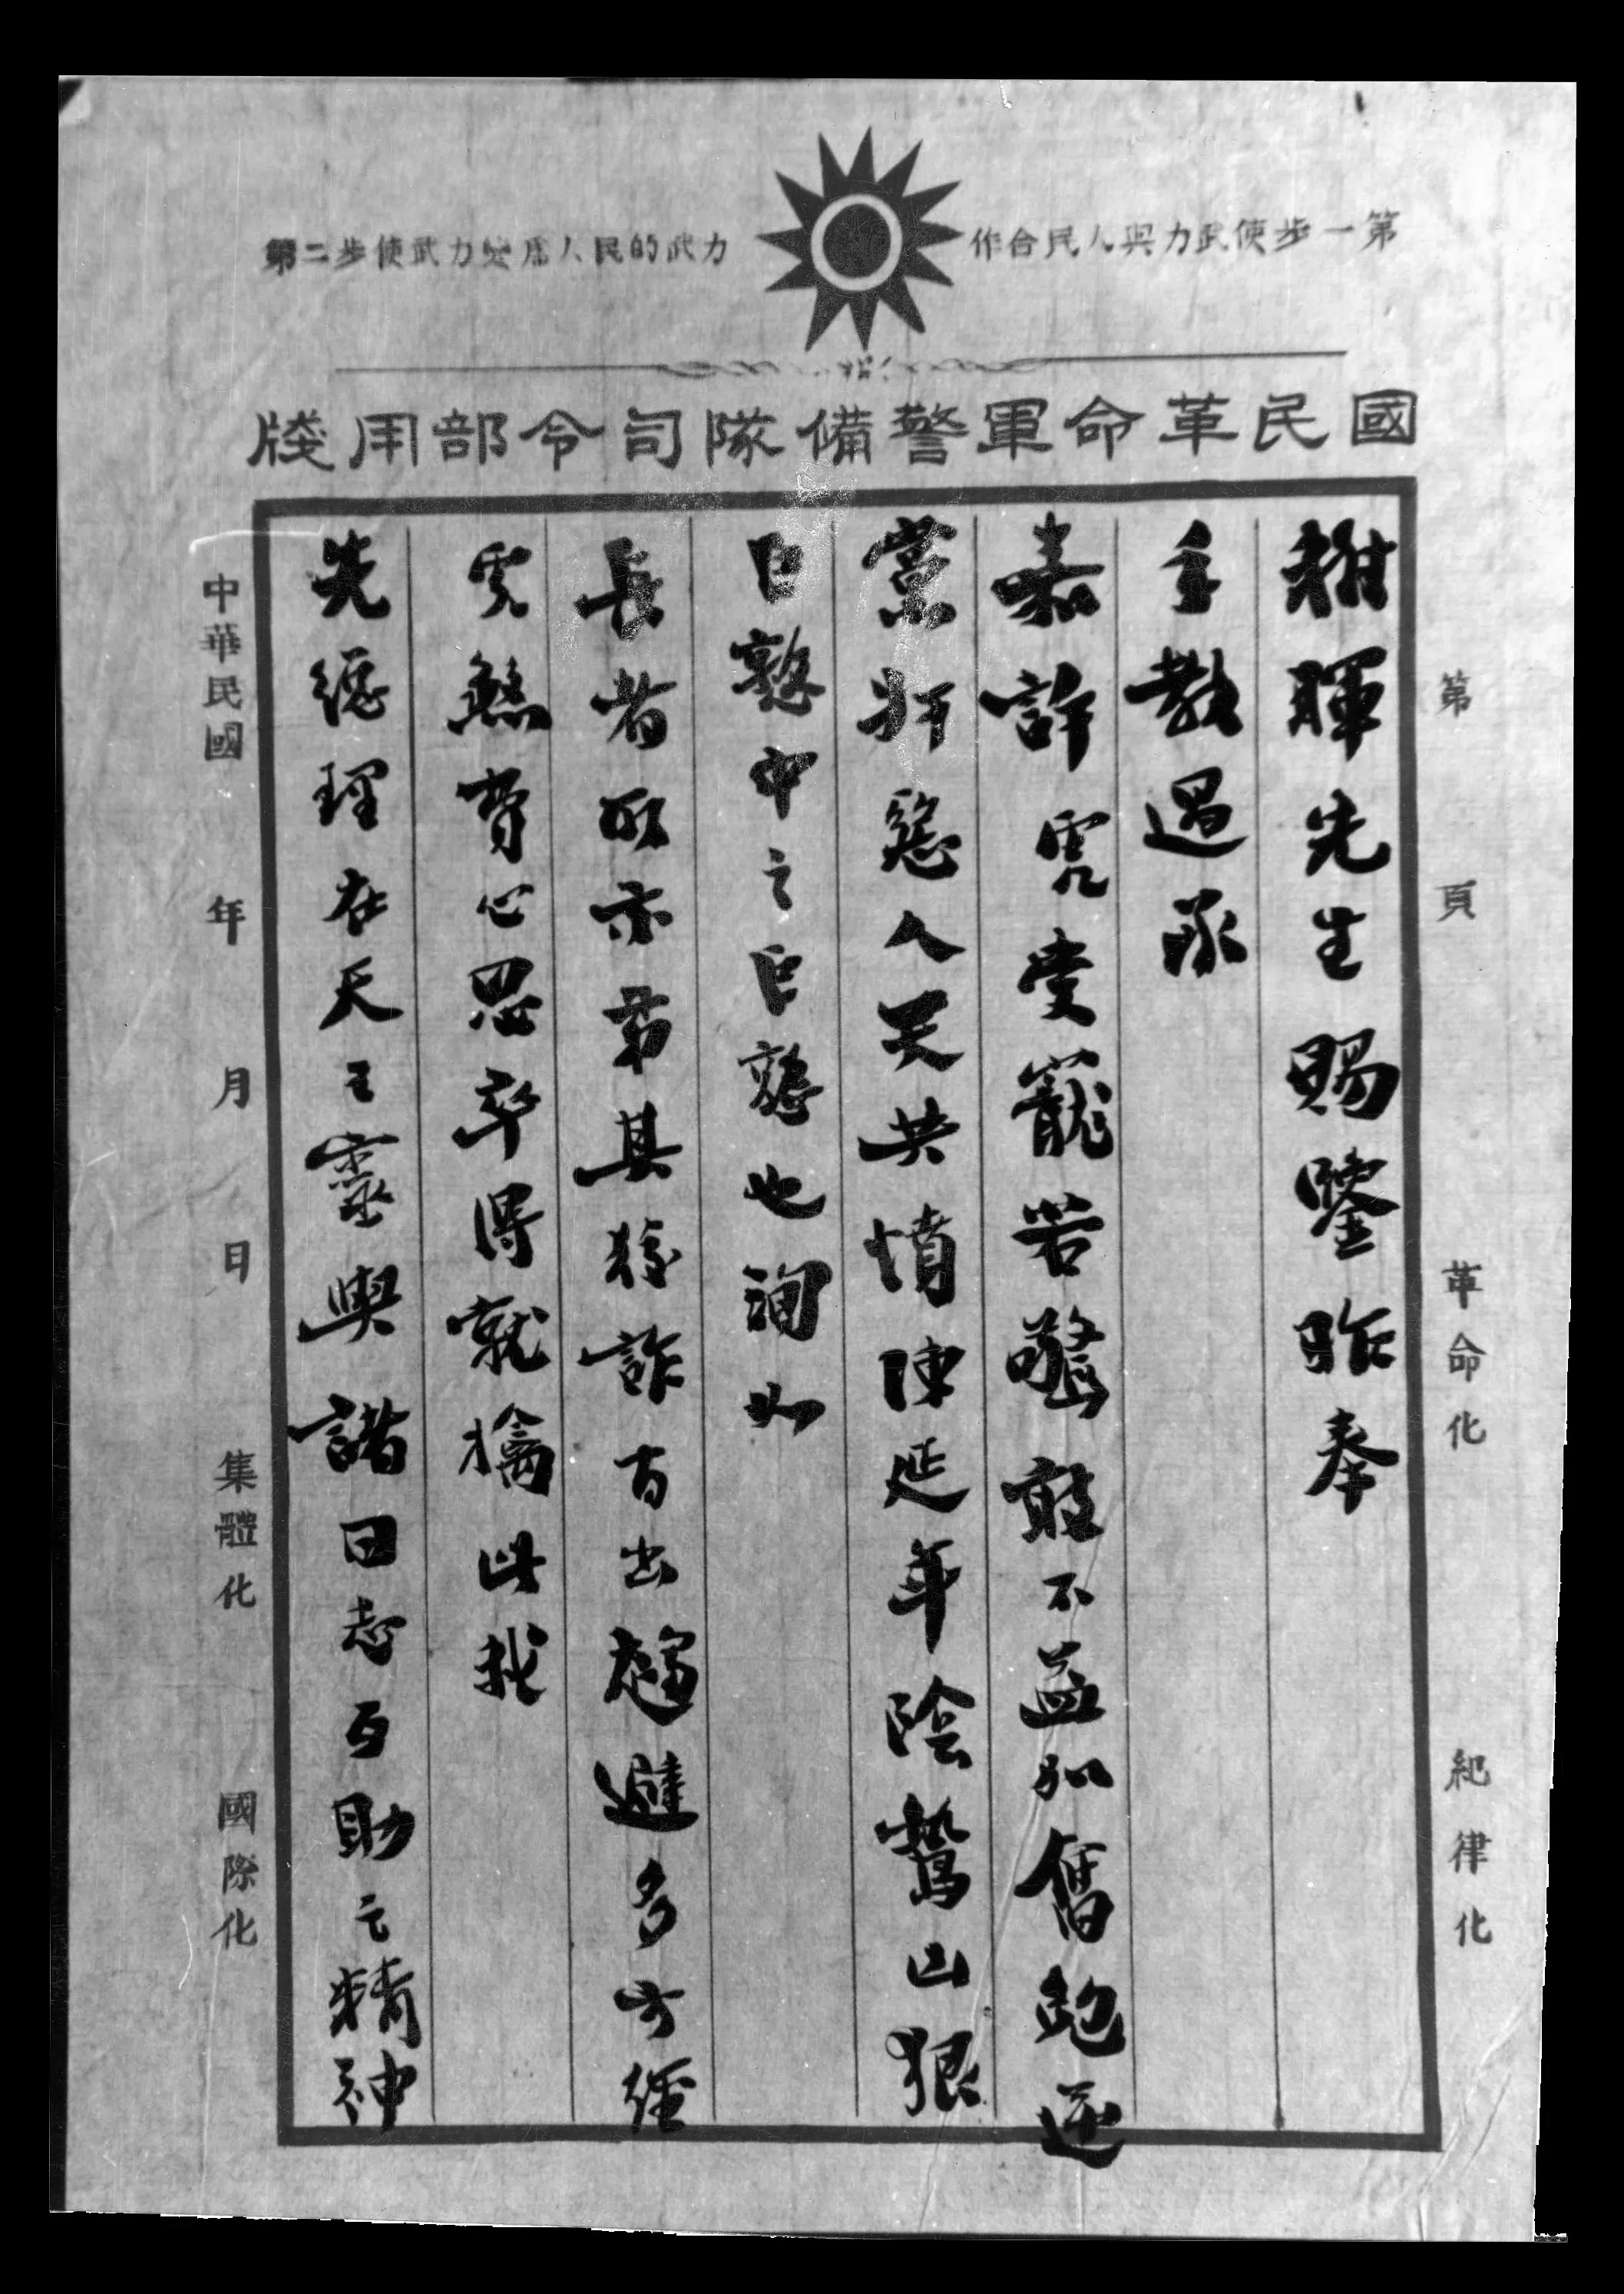 第一步使武力與人民合作
第二步使武力變為人民的武力
國民革命軍警備隊司令部用牋
第　頁　革命化　紀律化
稚暉先生賜鑒昨奉
手教過承
嘉許虎受寵若驚敢不益加奮勉逆
黨奸慝人天共憤陳延年陰鷙凶狠
巨憝中之巨憝也洵如
長者所示第其狡詐百出趨避多方經
虎煞費心思卒得就擒此我
先總理在天之靈與諸同志互助之精神
中華民國　年　月　日　集體化　國際化